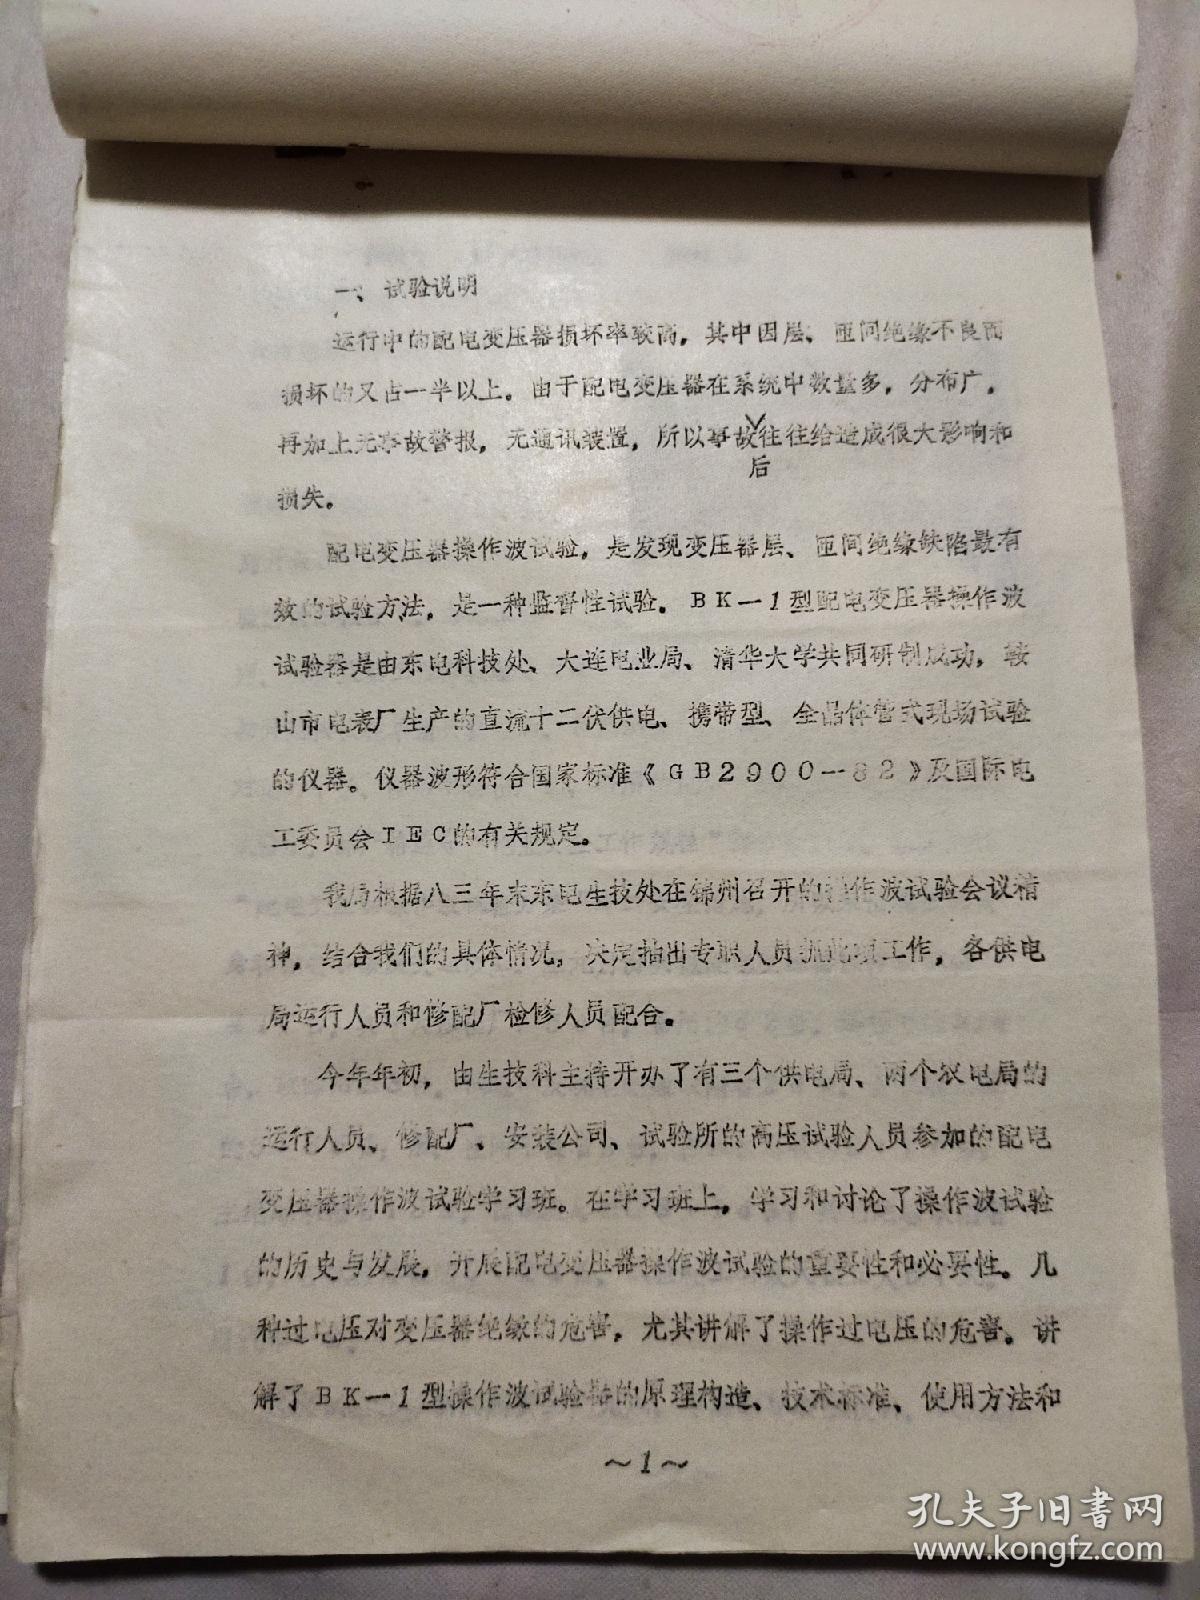 一、试验说明
运行中的配电变压器损坏率较高，其中因层、匝间绝缘不良而
损坏的又占一半以上。由于配电变压器在系统中数量多，分布广，
再加上无事故警报，无通讯装置，所以事故往往给造成很大影响和
后
损失。
配电变压器操作波试验，是发现变压器层、匝间绝缘缺陷最有
效的试验方法，是一种监督性试验。BK—1型配电变压器操作波
试验器是由东电科技处、大连电业局、清华大学共同研制成功，鞍
山市电表厂生产的直流十二伏供电、携带型、全晶体管式现场试验
的仪器。仪器波形符合国家标准《GB2900—82》及国际电
工委员会IEC的有关规定。
我局根据八三年末东电生技处在锦州召开的操作波试验会议精
神，结合我们的具体情况，决定抽出专职人员抓此项工作，各供电
局运行人员和修配厂检修人员配合。
今年年初，由生技科主持开办了有三个供电局、两个农电局的
运行人员、修配厂、安装公司、试验所的高压试验人员参加的配电
变压器操作波试验学习班。在学习班上，学习和讨论了操作波试验
的历史与发展，开展配电变压器操作波试验的重要性和必要性。几
种过电压对变压器绝缘的危害，尤其讲解了操作过电压的危害。讲
解了BK—1型操作波试验器的原理构造、技术标准、使用方法和
～1～
孔夫子旧书网
www.kongfz.com